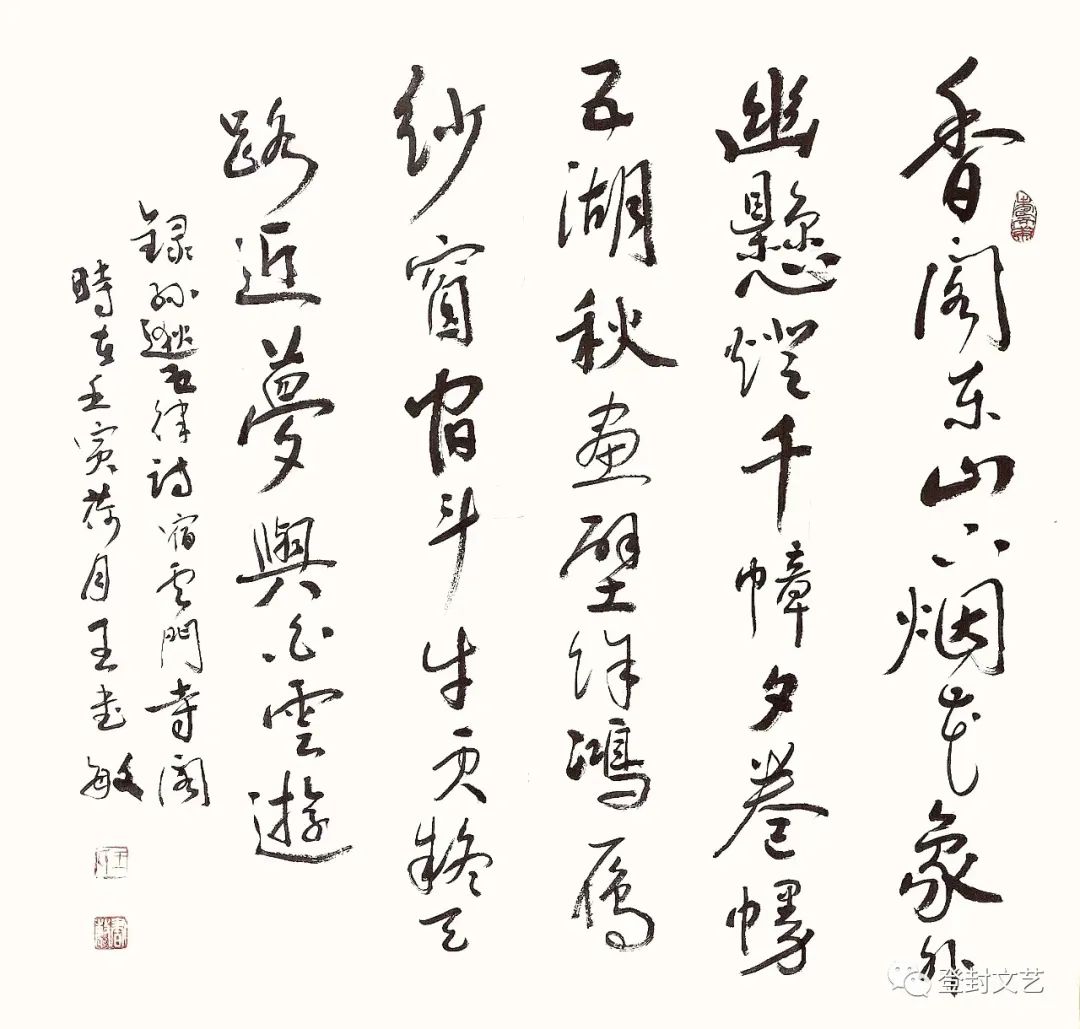 香閣东山下烟花象外
幽懸燈千幛夕卷幔
五湖秋畫壁馀鴻雁
纱窗宿斗牛更疑天
路近夢與白雲遊
録孫逖五律詩宿雲門寺閣
時在壬寅荷月王书敏
登封文艺